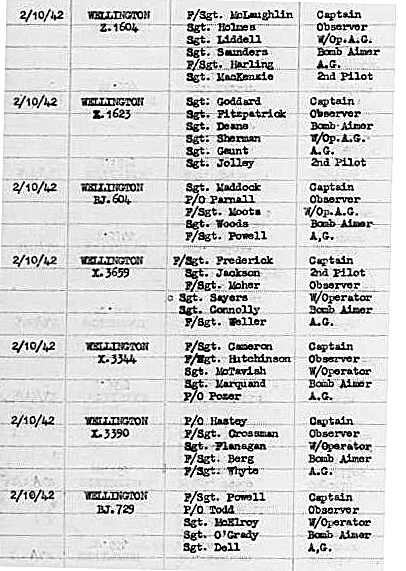 2/10/42 WELLINGTON F/Sgt. McLaughlin Captain
Z.1604 Sgt. Holmes Observer
Sgt. Liddell W/Op.A.G.
Sgt. Saunders Bomb Aimer
F/Sgt. Harling A.G.
Sgt. MacKenzie 2nd Pilot
2/10/42 WELLINGTON Sgt. Goddard Captain
X.1623 Sgt. Fitzpatrick Observer
Sgt. Deane Bomb Aimer
Sgt. Sherman W/Op.A.G.
Sgt. Gaunt A.G.
Sgt. Jolley 2nd Pilot
2/10/42 WELLINGTON Sgt. Maddock Captain
BJ.604 P/O Parnall Observer
F/Sgt. Moots W/Op.A.G.
Sgt. Woods Bomb Aimer
F/Sgt. Powell A,G.
2/10/42 WELLINGTON F/Sgt. Frederick Captain
X.3659 Sgt. Jackson 2nd Pilot
F/Sgt. Moher Observer
Sgt. Sayers W/Operator
Sgt. Connolly Bomb Aimer
F/Sgt. Weller A.G.
2/10/42 WELLINGTON F/Sgt. Cameron Captain
X.3344 F/Sgt. Hutchinson Observer
Sgt. McTavish W/Operator
Sgt. Marquand Bomb Aimer
P/O Pozer A.G.
2/10/42 WELLINGTON P/O Hastey Captain
X.3390 F/Sgt. Crossman Observer
Sgt. Flanagan W/Operator
F/Sgt. Berg Bomb Aimer
F/Sgt. Whyte A.G.
2/10/42 WELLINGTON F/Sgt. Powell Captain
BJ.729 P/O Todd Observer
Sgt. McElroy W/Operator
Sgt. O'Grady Bomb Aimer
Sgt. Dell A,G.